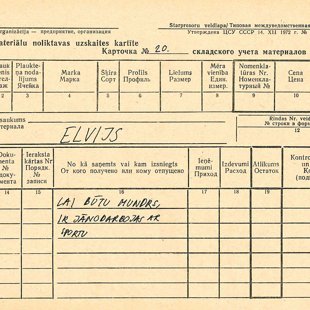 Starpresoru veidlapa/Типовая междуведомственная
рганizācija — предприятие, организация
Утверждена ЦСУ СССР 14. XII 1972 г. №
ateriālu noliktavas uzskaites kartiīte
Карточка № 20. складского учета материалов
Plaukte-
ņa noda-
lījums
Ячейка
Marka
Марка
Šķira
Сорт
Profils
Профиль
Lielums
Размер
Mēra
vienība
Един.
измер.
Nomenkla-
tūras Nr.
Номенкла-
турный №
Cena
Цена
2
3
4
5
6
7
8
9
10
saukums
териала
ELVIJS
Rindas Nr. veidl
№ строки в форм
12
Doku-
menta
№
доку-
мента
Ieraksta
kārtas Nr
Порядк.
№
записи
No kā saņemts vai kam izsniegts
От кого получено или кому отпущено
Ieņē-
mumi
Приход
Izdevumi
Расход
Atlikums
Остаток
14
15
16
17
18
19
LAI BŪTU MUNDRS,
IR JĀNODARBOJAS AR
SPORTU